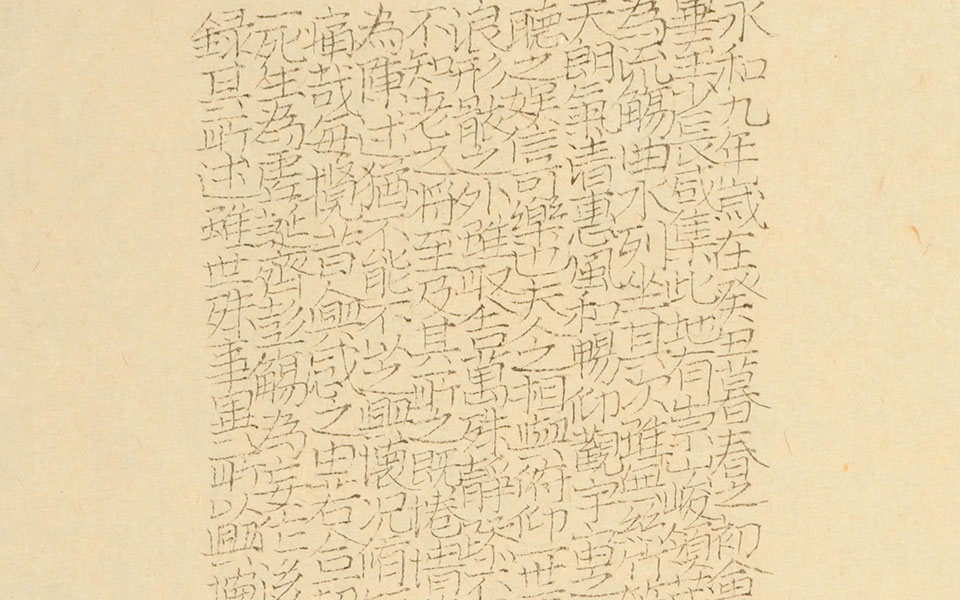 永和九年歲在癸丑暮春之初會
畢至少長咸集此地有崇山峻領茂
為流觴曲水列坐其次雖無絲竹
天朗氣清惠風和暢仰觀宇宙之
聽之娛信可樂也夫人之相與俯仰一世
浪形骸之外雖取舍萬殊靜躁不
不知老之將至及其所之既惓情
為陳迹猶不能不以之興懷況脩
痛哉每攬昔人興感之由若合
死生為虛誕齊彭殤為妄作後
録其所述雖世殊事異所以興懷